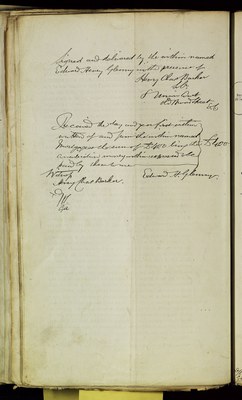 Signed and delivered by the within named
Edward Henry Glenny in the presence of
Henry Chas Barker
Received the day and year first within
written of and from the within named
Mortgagees the sum of £400 being the £400
consideration money within expressed to be
paid by them to me
Witness
Henry Chas Barker.
Edward H. Glenny